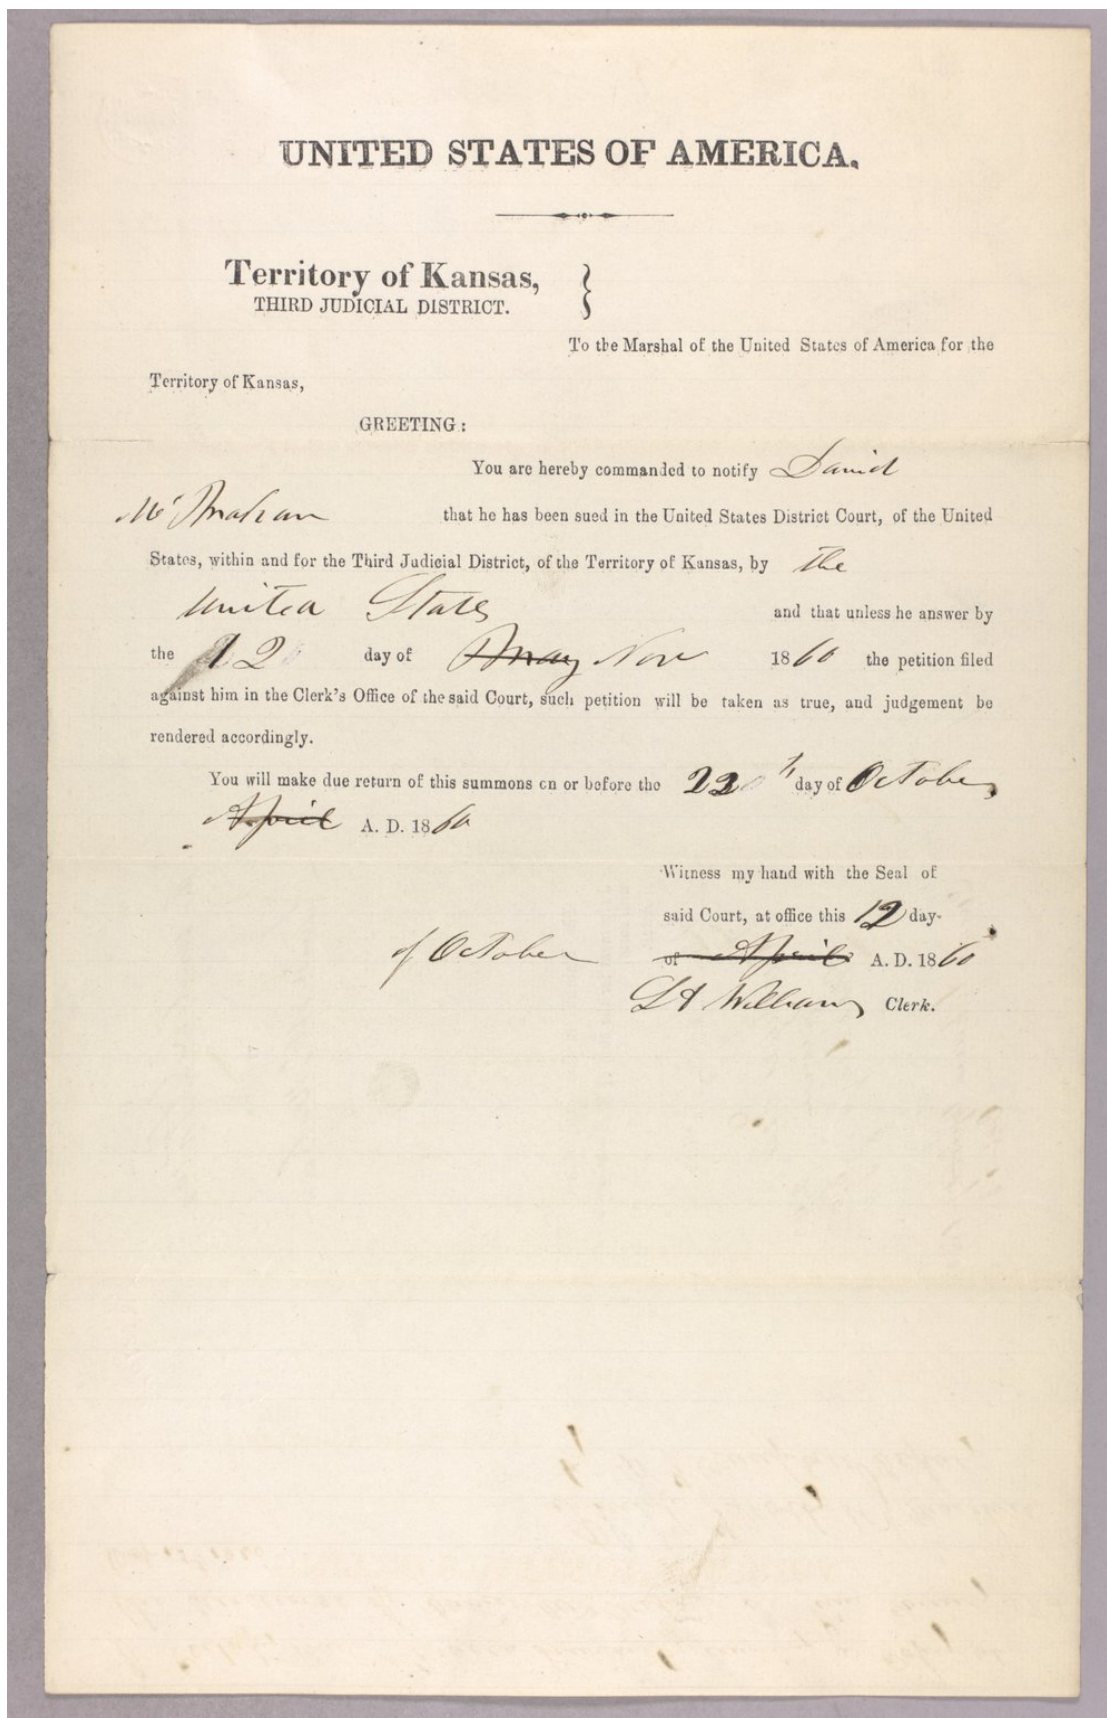 UNITED STATES OF AMERICA.
Territory of Kansas,
THIRD JUDICIAL DISTRICT.
To the Marshal of the United States of America for the
Territory of Kansas,
GREETING:
You are hereby commanded to notify David
that he has been sued in the United States District Court, of the United
States, within and for the Third Judicial District, of the Territory of Kansas, by the
United States and that unless he answer by
the 12 day of May Nov 1860 the petition filed
against him in the Clerk's Office of the said Court, such petition will be taken as true, and judgement be
rendered accordingly.
You will make due return of this summons on or before the 22 day of October
April A. D. 1860
Witness my hand with the Seal of
said Court, at office this 12 day
of October of April A. D. 1860
L A Williams Clerk.